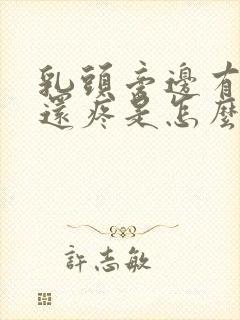 乳頭旁邊有
還疼是怎麼
許志敏